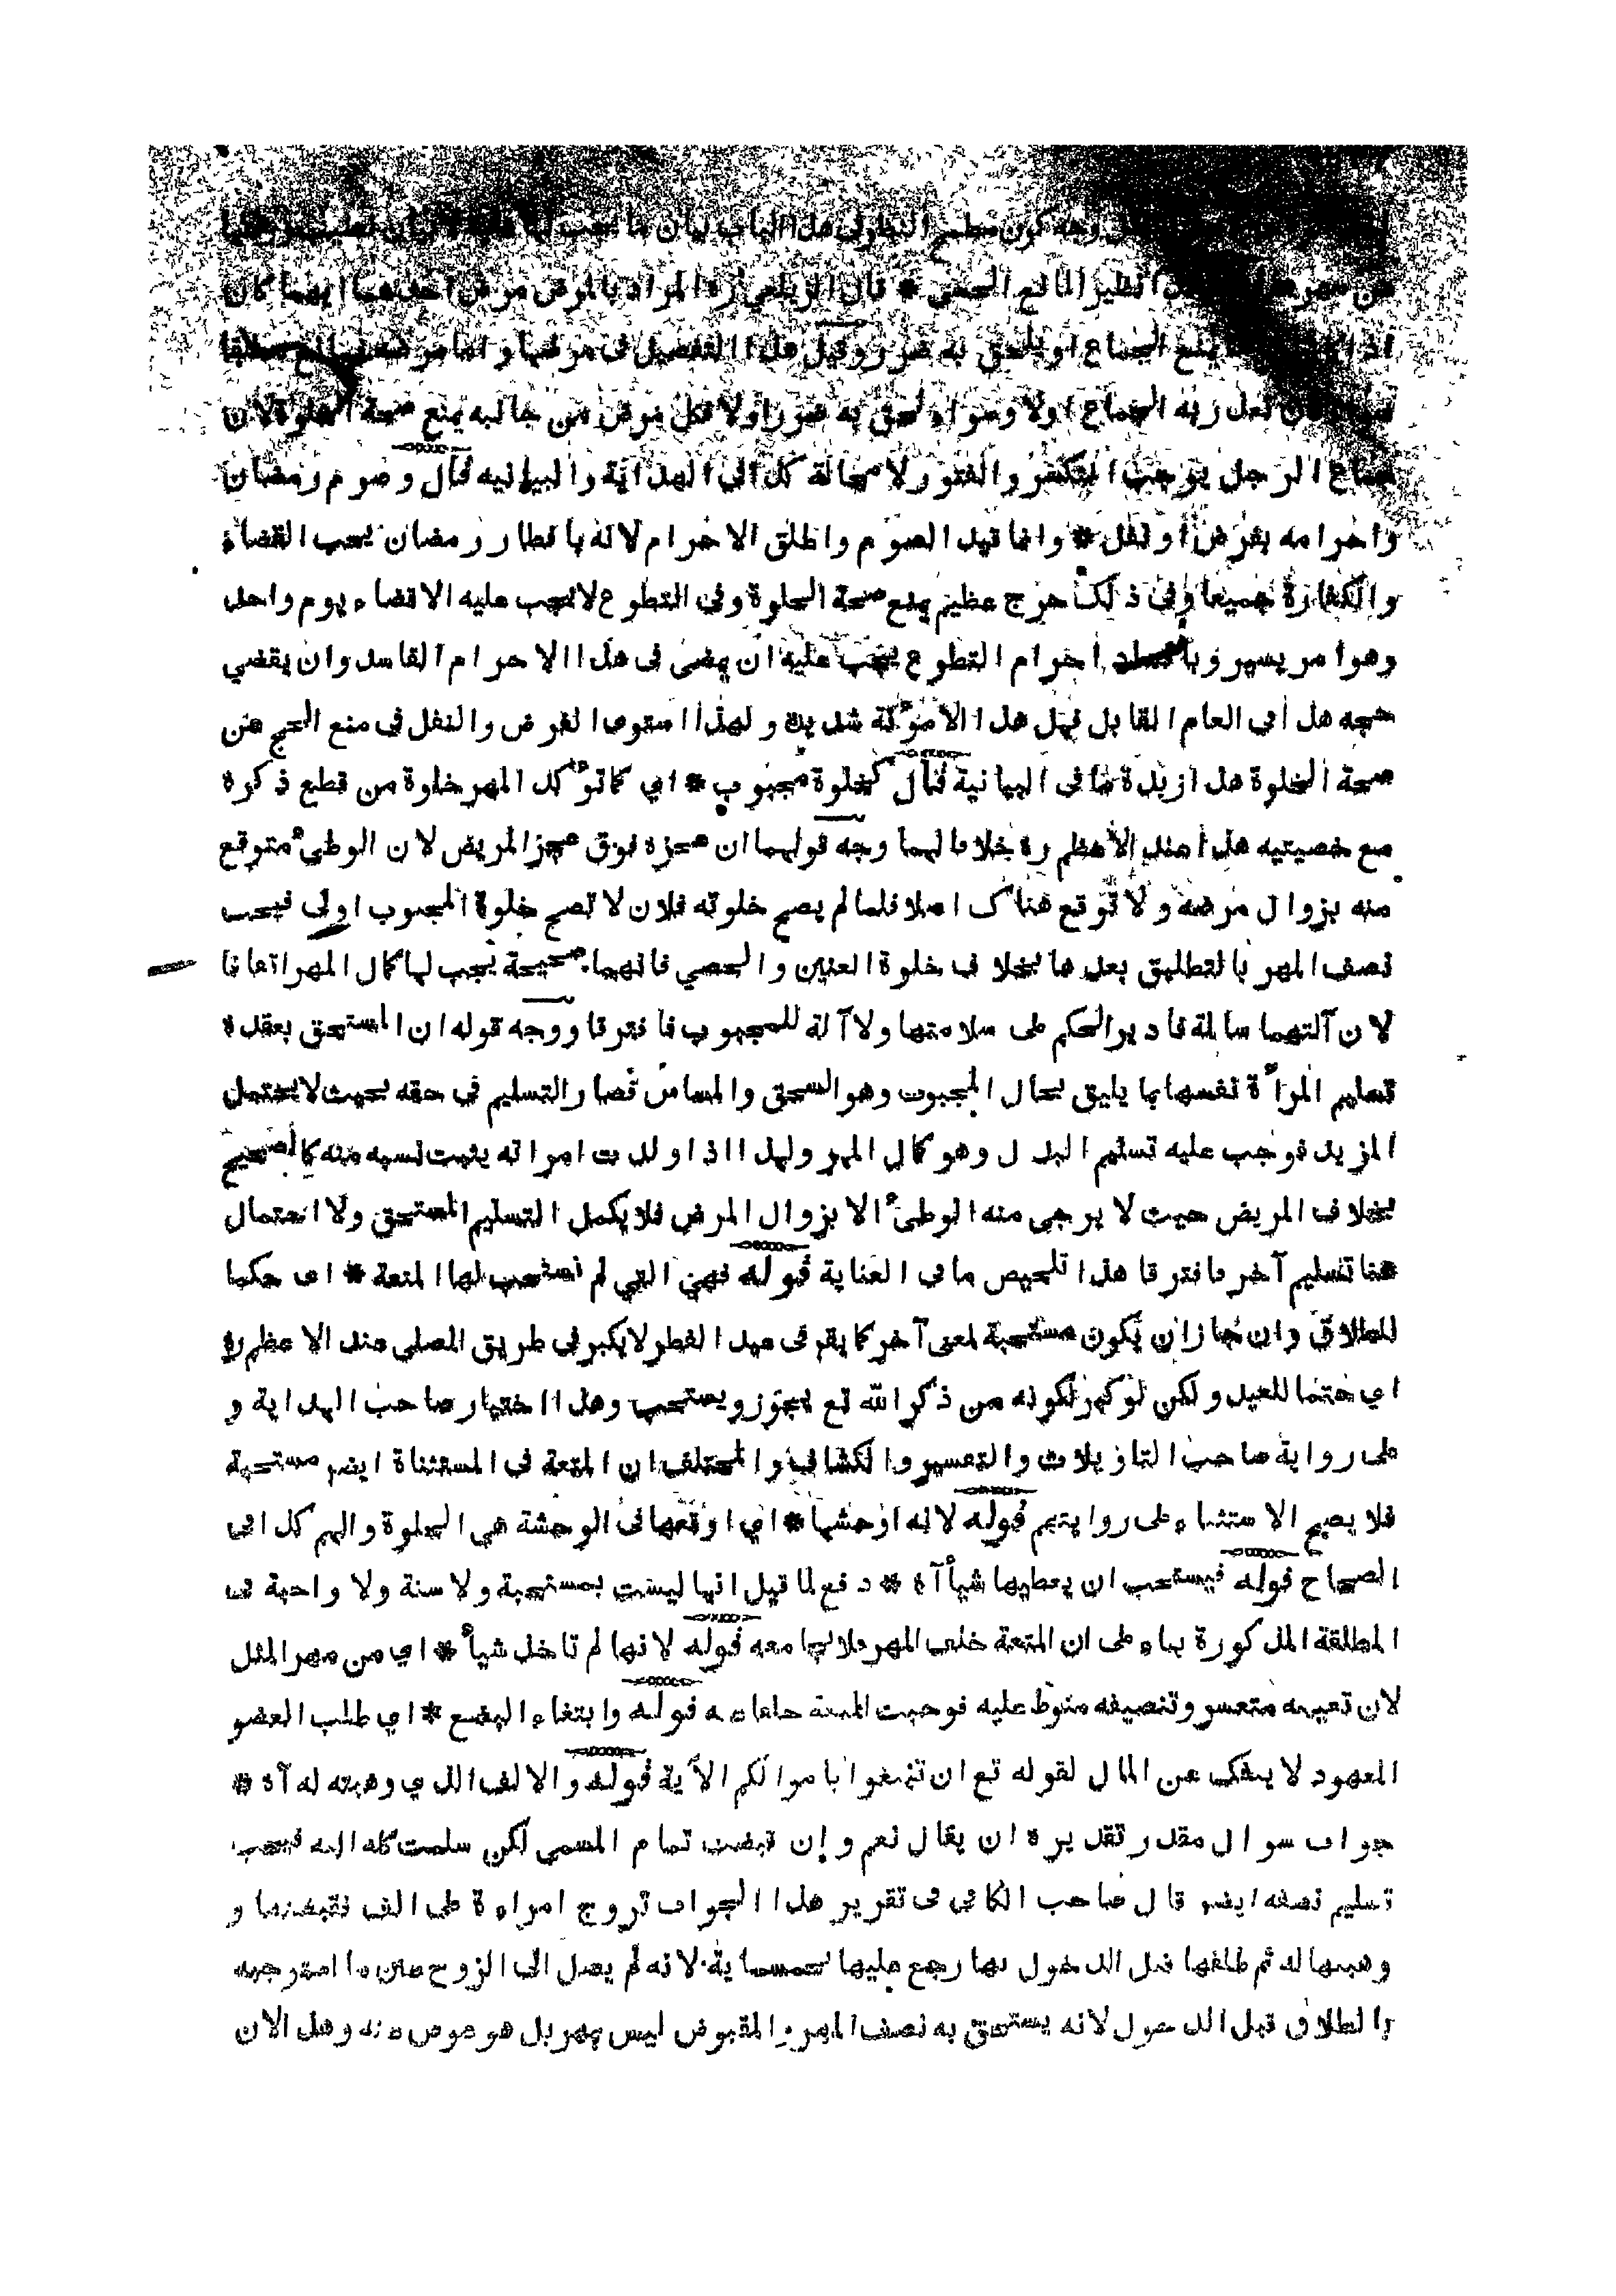 وجه كون مطمح النظر في هذا الباب بيان ما
نظير المانع الحسي * قال الزيلعي ره المراد بالمرض مرض احدهما ايهما كان
اذا يمنع الجماع او يلحق به ضرر وقيل هذا التفصيل في مرضها واما مرضه
تعذر به الجماع اولا وسواء لحق به ضررا ولا فكل مرض من جانبه يمنع صحة الخلوة لان
جماع الرجل يوجب التكسر والفتور لا محالة كذا في الهداية والبيانيه قال وصوم رمضان
واحرامه بفرض او نفل * وانما قيد الصوم واطلق الاحرام لانه بافطار رمضان يجب القضاء
والكفارة جميعا وفي ذلك حرج عظيم يمنع صحة الخلوة وفي التطوع لا يجب عليه الا قضاء يوم واحد
وهو امر يسير وبافساد احرام التطوع يجب عليه ان يمضى في هذا الاحرام الفاسد وان يقضي
حجه هذا في العام القابل فهل هذا الا مؤنة شديدة ولهذا استوى الفرض والنفل في منع الحج عن
صحة الخلوة هذا زبدة ما في البيانية قال كخلوة مجبوب * اي كما تؤكد المهر خلوة من قطع ذكره
مع خصيتيه هذا عند الاعظم ره خلافا لهما وجه قولهما ان عجزه فوق عجز المريض لان الوطئ متوقع
منه بزوال مرضه ولا توقع هناك اصلا فلما لم يصح خلوته فلان لا تصح خلوة المجبوب اولى فيجب
نصف المهر بالتطليق بعدها بخلاف خلوة العنين والخصي فانهما صحيحة يجب لها كمال المهر اتفاقا
لان آلتهما سالمة فادير الحكم على سلامتها ولا آلة للمجبوب فافترقا ووجه قوله ان المستحق بعقده
تسليم المرأة نفسها بما يليق بحال المجبوب وهو السحق والمساس فصار التسليم في حقه بحيث لا يحتمل
المزيد فوجب عليه تسليم البدل وهو كمال المهر ولهذا اذا ولدت امراته يثبت نسبه منه كالصحيح
بخلاف المريض حيث لا يرجى منه الوطئ الا بزوال المرض فلا يكمل التسليم المستحق ولا احتمال
هنا تسليم آخر فافترقا هذا تلخيص ما في العناية قوله فهي التي لم تستحب لها المتعة * اى حكما
للطلاق وان جاز ان يكون مستحبة لمعنى آخر كما يقر في عيد الفطر لا يكبر في طريق المصلى عند الاعظم ره
اي حتما للعيد ولكن لو كبر لكونه من ذكر الله تع يجوز ويستحب وهذا اختيار صاحب الهداية و
على رواية صاحب التاويلات والتيسير والكشاف والمختلف ان المتعة في المستثناة ايضر مستحبة
فلا يصح الاستثناء على روايتهم قوله لانه اوحشها * اي اوقعها في الوحشة هي الخلوة والهم كذا في
الصحاح قوله فيستحب ان يعطيها شيأ آه * دفع لما قيل انها ليست بمستحبة ولا سنة ولا واجبة في
المطلقة المذكورة بناء على ان المتعة خلف المهر فلا يجامعه قوله لانها لم تاخذ شيأ * اي من مهر المثل
لان تعيينه متعسر وتنصيفه منوط عليه فوجبت المتعة قوله وابتغاء البضع * اي طلب العضو
المعهود لا ينفك عن المال لقوله تع ان تبتغوا باموالكم الآية قوله والالف الذي وهبته له آه *
جواب سوال مقدر تقديره ان يقال نعم وإن قبضت تمام المسمى لكن سلمت كله اليه فيجب
تسليم نصفه ايضر قال صاحب الكافي في تقرير هذا الجواب تزوج امراءة على الف فقبضتها و
وهبتها له ثم طلقها قبل الدخول بها رجع عليها بخمسماية لانه لم يصل الى الزوج عين ما استوجبه
بالطلاق قبل الدخول لانه يستحق به نصف المهر والمقبوض ليس بمهر بل هو عوض عنه وهذا لان